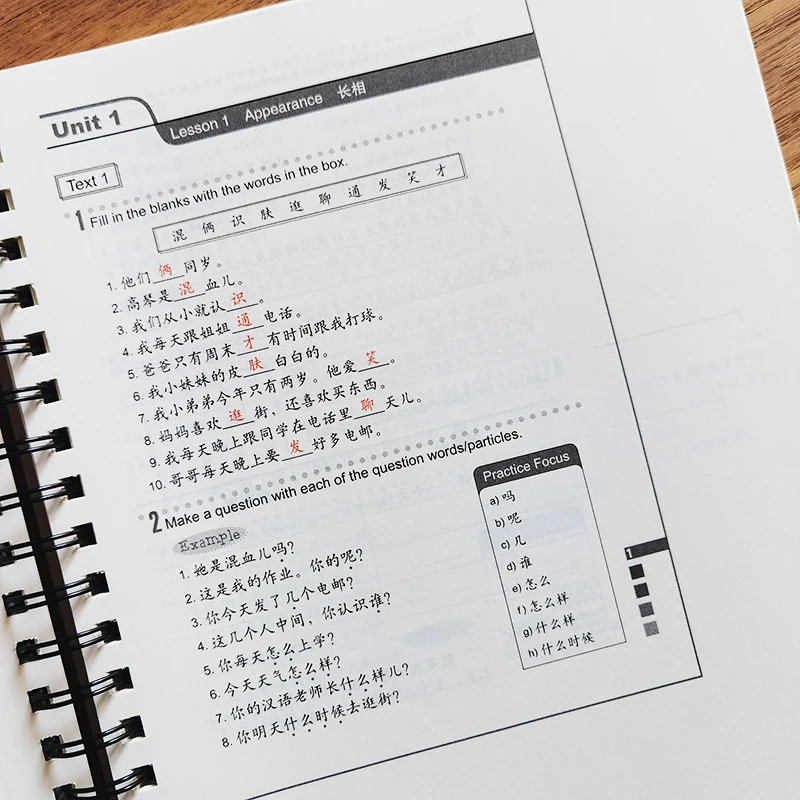 Unit 1
Lesson 1 Appearance 长相
Text 1
1 Fill in the blanks with the words in the box.
混 俩 识 肤 逛 聊 通 发 笑 才
1. 他们 俩 同岁。
2. 高琴是 混 血儿。
3. 我们从小就认 识 。
4. 我每天跟姐姐 通 电话。
5. 爸爸只有周末 才 有时间跟我打球。
6. 我小妹妹的皮 肤 白白的。
7. 我小弟弟今年只有两岁。他爱 笑 。
8. 妈妈喜欢 逛 街，还喜欢买东西。
9. 我每天晚上跟同学在电话里 聊 天儿。
10. 哥哥每天晚上要 发 好多电邮。
2 Make a question with each of the question words/particles.
Example
1. 她是混血儿吗？
2. 这是我的作业。你的呢？
3. 你今天发了几个电邮？
4. 这几个人中间，你认识谁？
5. 你每天怎么上学？
6. 今天天气怎么样？
7. 你的汉语老师长什么样儿？
8. 你明天什么时候去逛街？
Practice Focus
a) 吗
b) 呢
c) 几
d) 谁
e) 怎么
f) 怎么样
g) 什么样
h) 什么时候
1